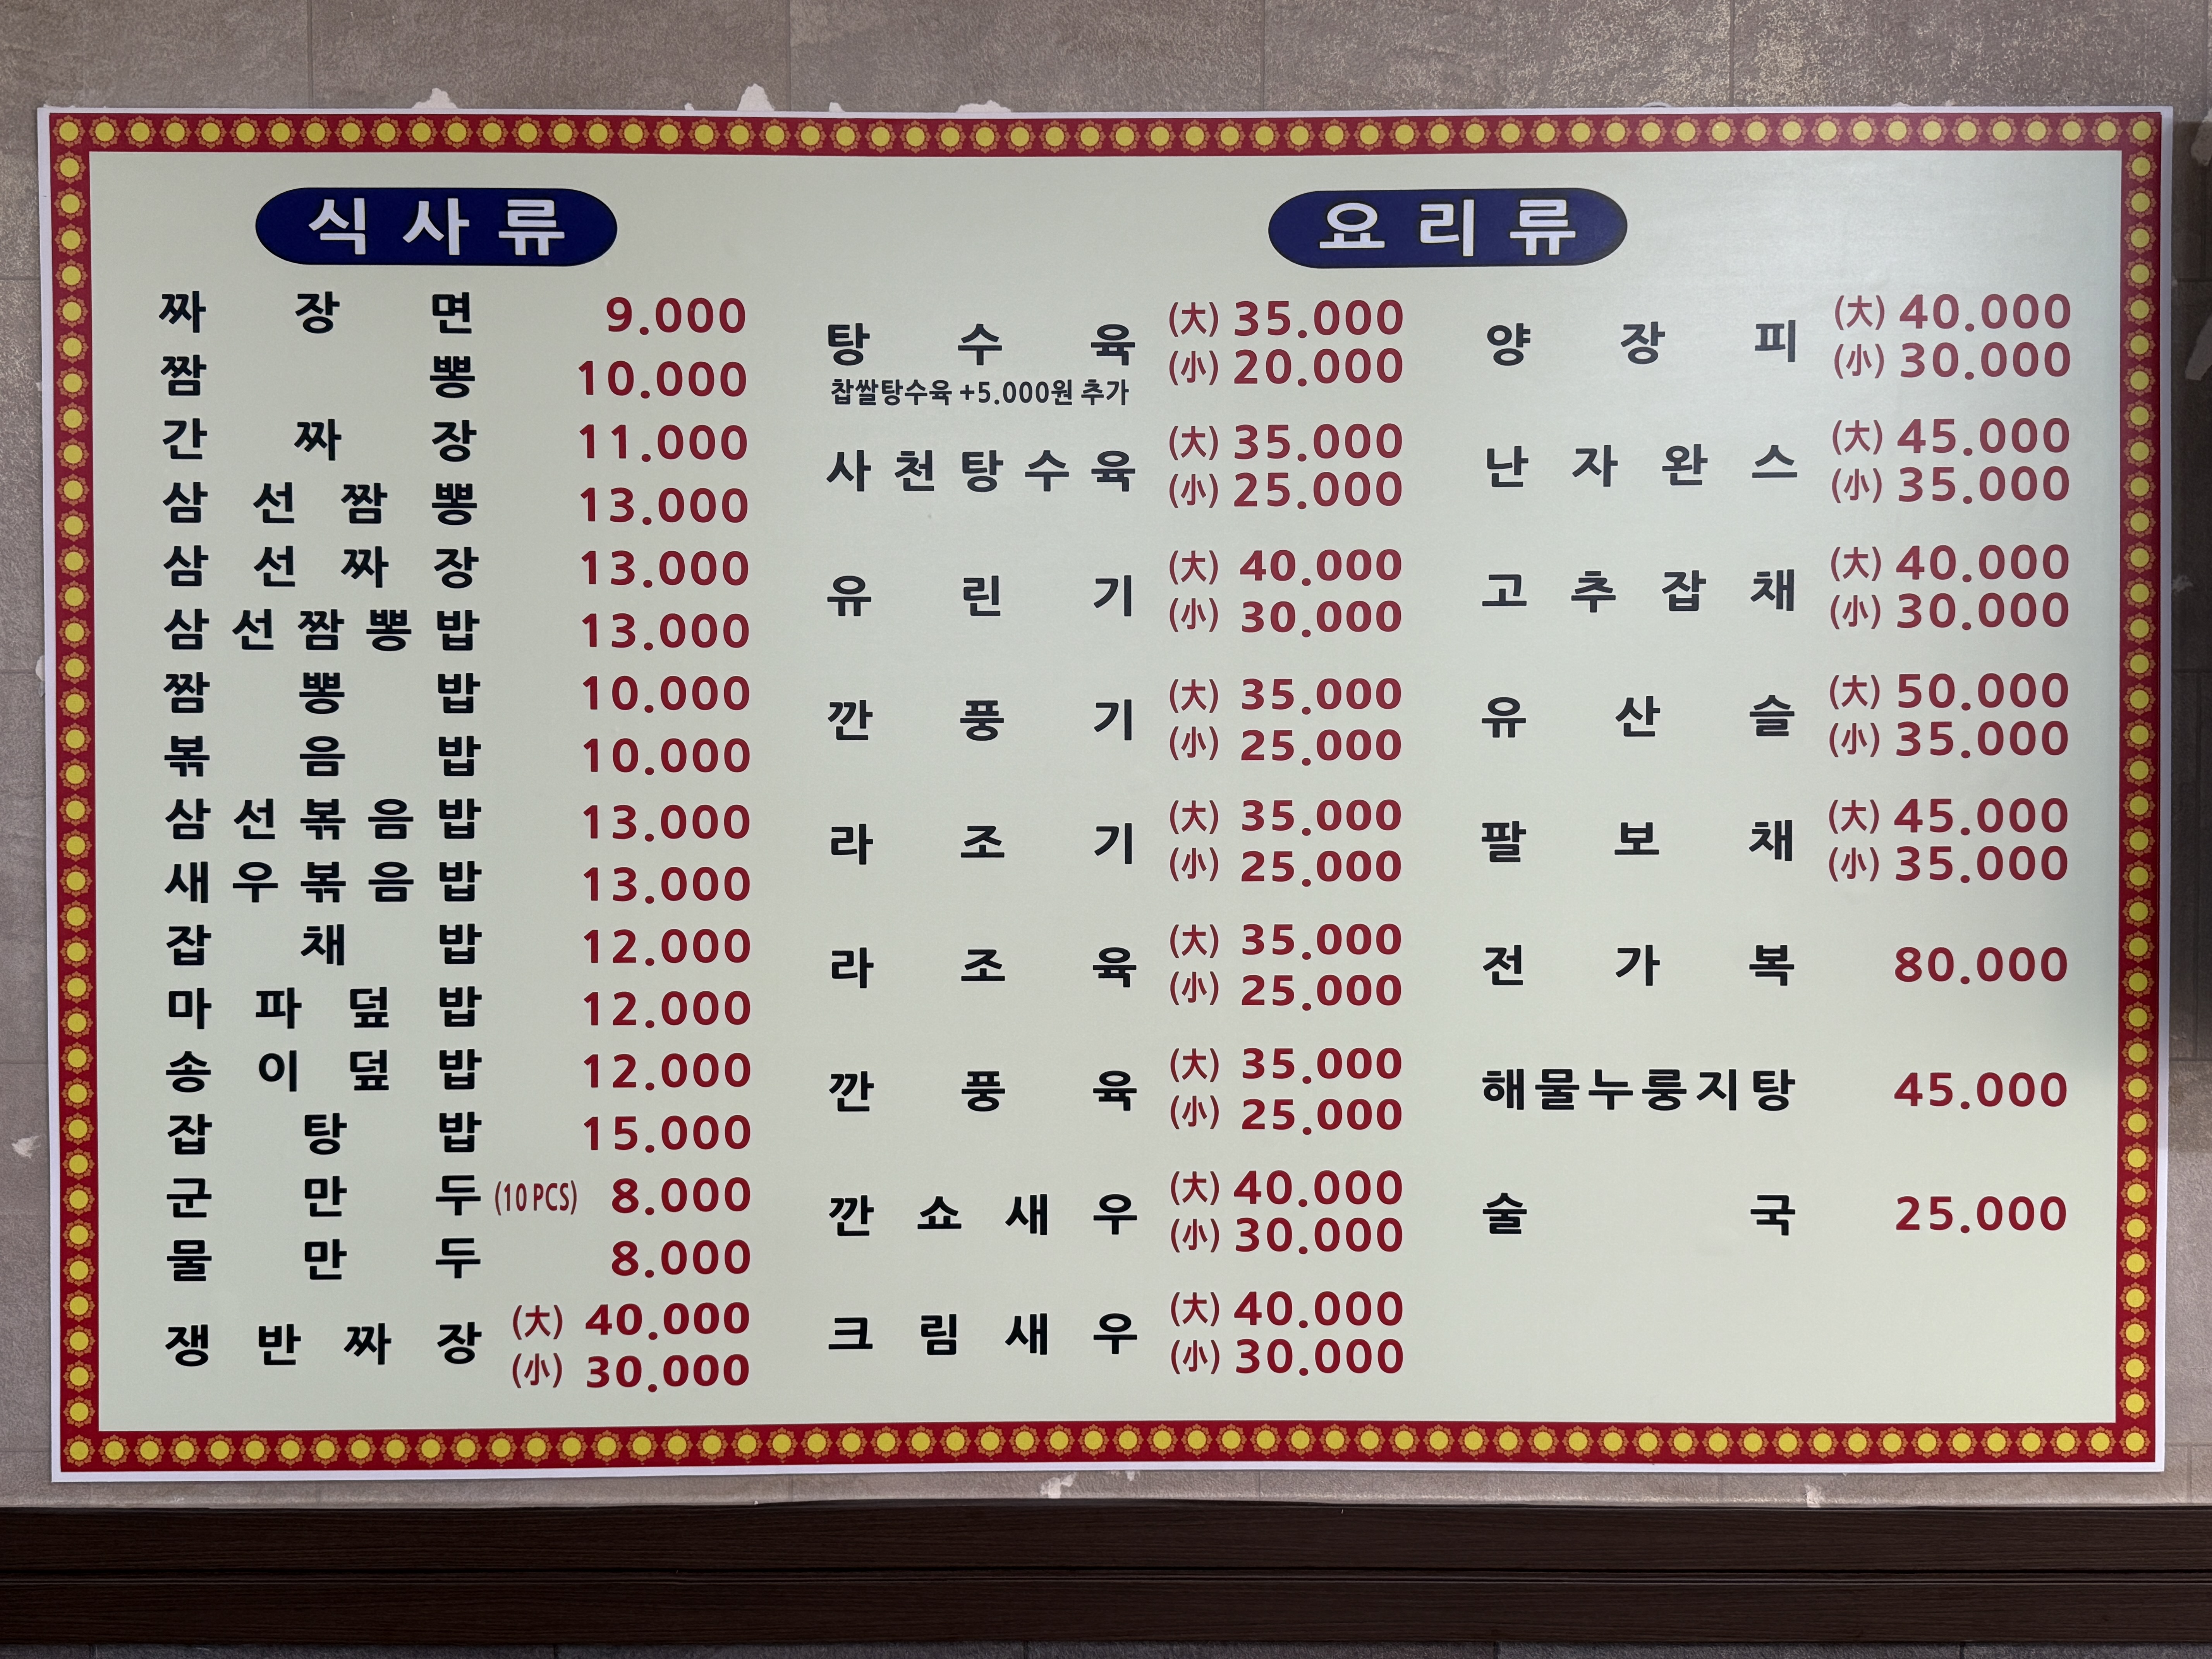 식사류
짜장면 9.000
짬뽕 10.000
간짜장 11.000
삼선짬뽕 13.000
삼선짜장 13.000
삼선짬뽕밥 13.000
짬뽕밥 10.000
볶음밥 10.000
삼선볶음밥 13.000
새우볶음밥 13.000
잡채밥 12.000
마파덮밥 12.000
송이덮밥 12.000
잡탕밥 15.000
군만두 (10 PCS) 8.000
물만두 8.000
쟁반짜장 (大) 40.000
(小) 30.000
요리류
탕수육 (大) 35.000
(小) 20.000
찹쌀탕수육 +5.000원 추가
사천탕수육 (大) 35.000
(小) 25.000
유린기 (大) 40.000
(小) 30.000
깐풍기 (大) 35.000
(小) 25.000
라조기 (大) 35.000
(小) 25.000
라조육 (大) 35.000
(小) 25.000
깐풍육 (大) 35.000
(小) 25.000
깐쇼새우 (大) 40.000
(小) 30.000
크림새우 (大) 40.000
(小) 30.000
양장피 (大) 40.000
(小) 30.000
난자완스 (大) 45.000
(小) 35.000
고추잡채 (大) 40.000
(小) 30.000
유산슬 (大) 50.000
(小) 35.000
팔보채 (大) 45.000
(小) 35.000
전가복 80.000
해물누룽지탕 45.000
술국 25.000